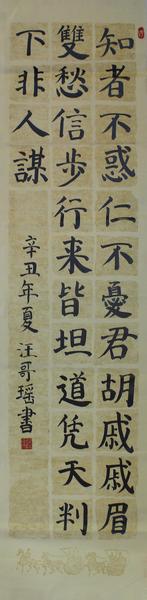 知者不惑仁不憂君胡戚戚眉
雙愁信步行来皆坦道凭天判
下非人謀
辛丑年夏汪哥瑶書